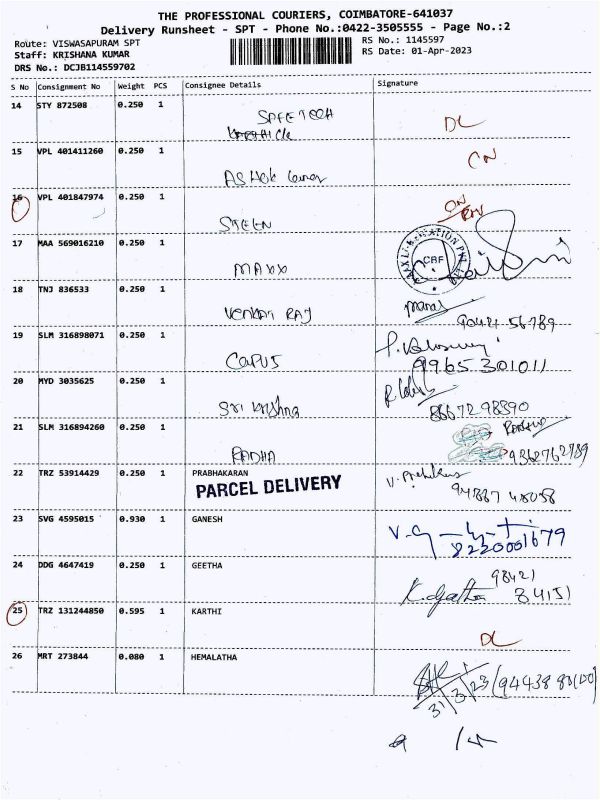 THE PROFESSIONAL COURIERS, COIMBATORE-641037
Delivery Runsheet - SPT - Phone No.:0422-3505555 - Page No.:2
Route: VISWASAPURAM SPT
Staff: KRISHANA KUMAR
DRS No.: DCJB114559702
RS No.: 1145597
RS Date: 01-Apr-2023
S No Consignment No Weight PCS Consignee Details Signature
14 STY 872508 0.250 1 SAFETECH DL
15 VPL 401411260 0.250 1 Ashok kumar CN
16 VPL 401847974 0.250 1 STEEN
17 MAA 569016210 0.250 1 MAXX CBF
18 TNJ 836533 0.250 1 Venkat RAJ
90421 56789
19 SLM 316898071 0.250 1
9965301011
20 MYD 3035625 0.250 1 Sri Krishna
8667298390
21 SLM 316894260 0.250 1 RADHA
9362762789
22 TRZ 53914429 0.250 1 PRABHAKARAN
PARCEL DELIVERY
23 SVG 4595015 0.930 1 GANESH
8220001679
24 DDG 4647419 0.250 1 GEETHA
98421
84151
25 TRZ 131244850 0.595 1 KARTHI DL
26 MRT 273844 0.080 1 HEMALATHA
31/3/23